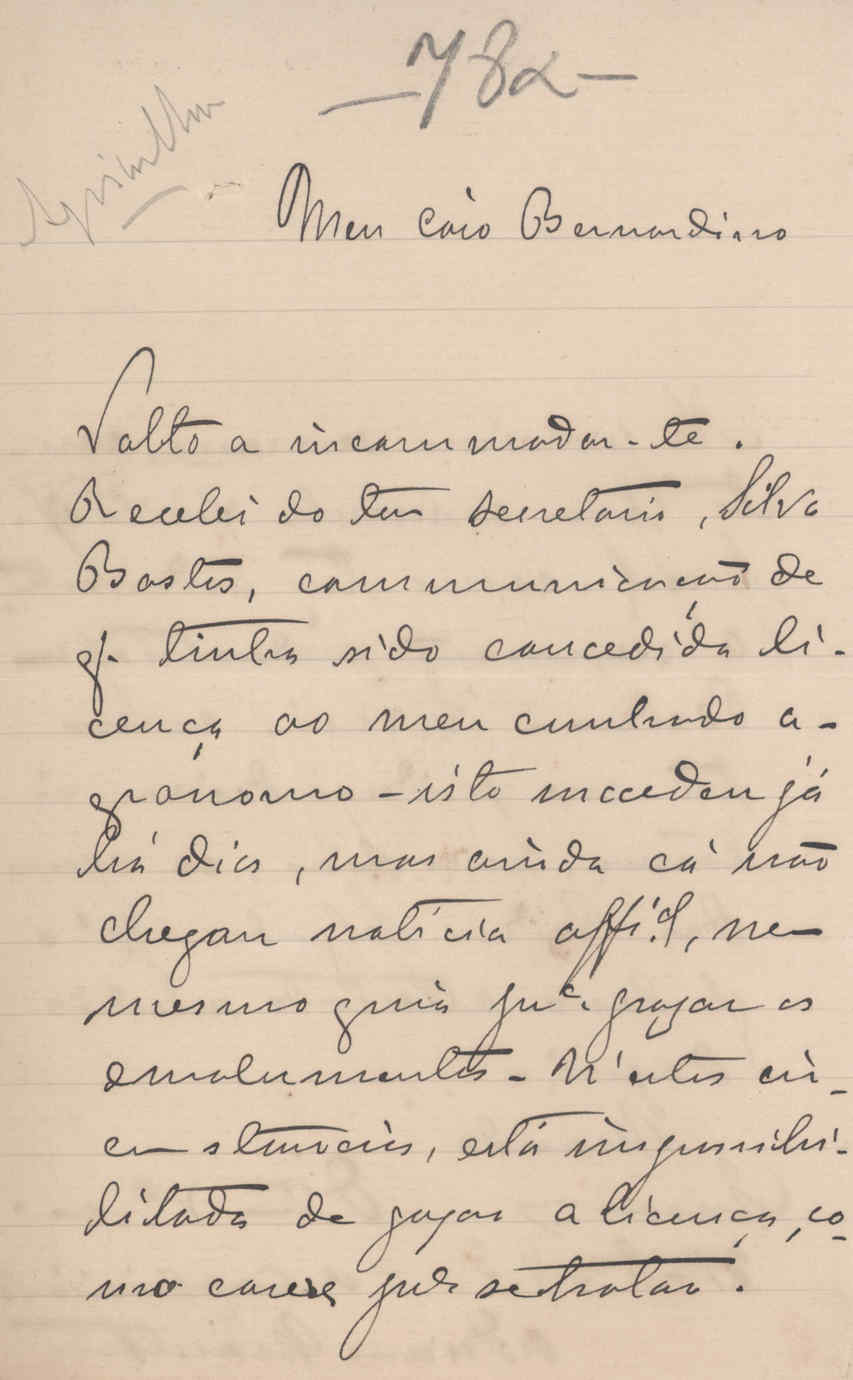 —782—
Agricultura
Meu caro Bernardino
Volto a incommodar-te.
Recebi do teu secretario, Silva
Bastos, communicação de
q. tinha sido concedida li-
cença ao meu cunhado a-
grónomo - isto succedeu já
há dias, mas ainda cá não
chegou noticia offi.al, nem
mesmo guia pª. pagar os
emolumentos - N'estas cir-
cunstancias, está impossibi-
litado de gozar a licença, co-
mo carece pª se tratar.